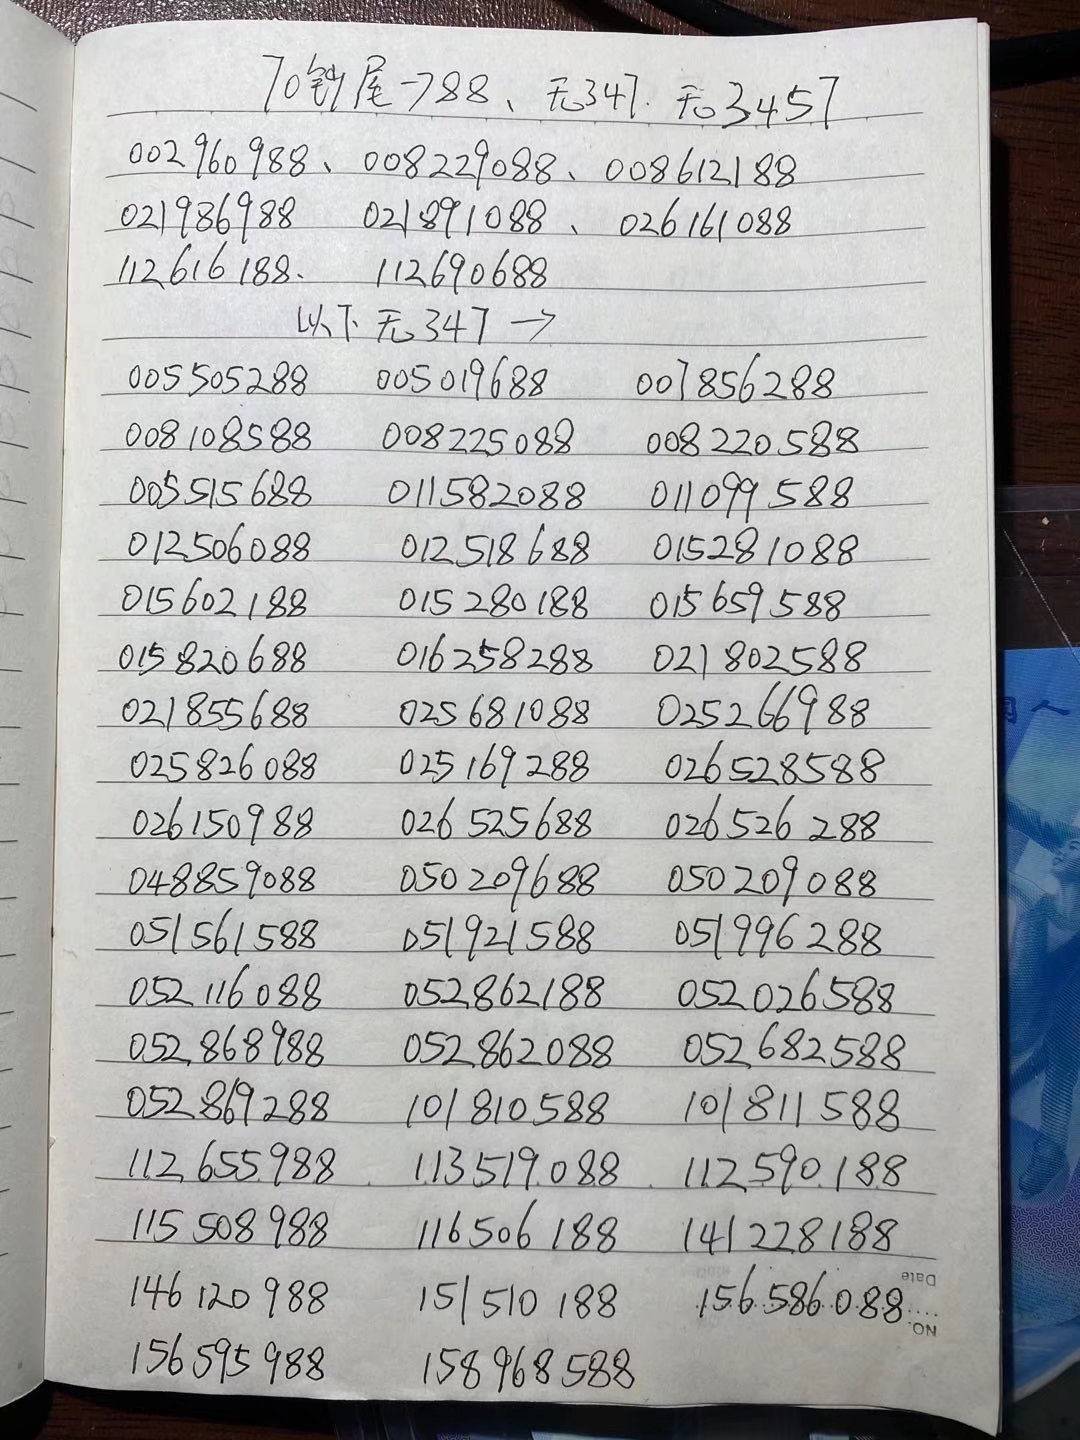 70钞尾→88、无347、无3457
002960988、008229088、008612188
021986988 021891088、026161088
112616188. 112690688
以下无347→
005505288 005019688 007856288
008108588 008225088 008220588
005515688 011582088 011099588
012506088 012518688 015281088
015602188 015280188 015659588
015820688 016258288 021802588
021855688 025681088 025266988
025826088 025169288 026528588
026150988 026525688 026526288
048859088 050209688 050209088
051561588 051921588 051996288
052116088 052862188 052026588
052868988 052862088 052682588
052869288 101810588 101811588
112655988 113519088 112590188
115508988 116506188 141228188
Date
146120988 151510188 156586088
NO.
156595988 158968588